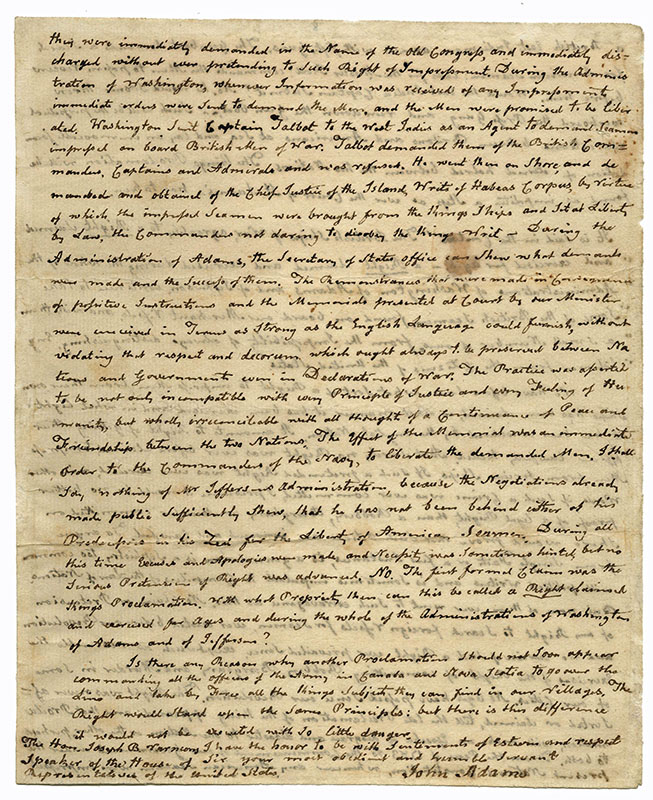 they were immediately demanded in the Name of the old Congress, and immediately dis-
charged without ever pretending to such Right of Impressment. During the Adminis
tration of Washington, whenever Information was received of any Impressment
immediate orders were sent to demand the Men, and the Men were promised to be liber
ated. Washington sent Captain Talbot to the West Indies as an Agent to demand Seamen
impressed on board British Men of War. Talbot demanded them of the British Com-
manders, Captains and Admirals and was refused. He went then on Shore, and de
manded and obtained of the Chief Justice of the Island, Writs of Habeas Corpus, by virtue
of which the impressed Seamen were brought from the Kings Ships and set at Liberty
by Law, the Commanders not daring to disobey the Kings Writ. — During the
Administration of Adams, the Secretary of State office can shew what demands
were made and the success of them. The Remonstrances that were made in Consequence
of possitive Instructions and the Memorials presented at Court by our Minister
were conceived in Terms as strong as the English Language could furnish, without
violating that respect and decorum which ought always to be preserved between Na
tions and Governments even in Declarations of War. The Practice was asserted
to be not only incompatible with every Principle of Justice and every Feeling of Hu
manity, but wholly irreconcileable with all thought of a Continuance of Peace and
Friendship between the two Nations. The Effect of the Memorial was an immediate
order to the Commanders of the Navy, to liberate the demanded Men. I shall
say nothing of Mr Jeffersons Administration, because the Negotiations already
made public sufficiently shew, that he has not been behind either of his
Predecessors in his Zeal for the Liberty of American Seamen. During all
this time Excuses and Apologies were made and Necessity was sometimes hinted, but no
serious Pretension of Right was advanced. No. The first formal Claim was the
Kings Proclamation. With what Propriety then can this be called a Right claimed
and exercised for Ages and during the whole of the Administrations of Washington
of Adams and of Jefferson?
Is there any Reason why another Proclamation should not soon appear
commanding all the officers of the Army in Canada and Nova Scotia to go over the
Line and take by Force all the Kings Subjects they can find in our Villages. The
Right would stand upon the same Principles: but there is this difference
it would not be executed with so little danger.
I have the honor to be with Sentiments of Esteem and respect
Sir your most obedient and humble Servant
John Adams
The Hon. Joseph B. Varnum,
Speaker of the House of
Representatives of the United States.